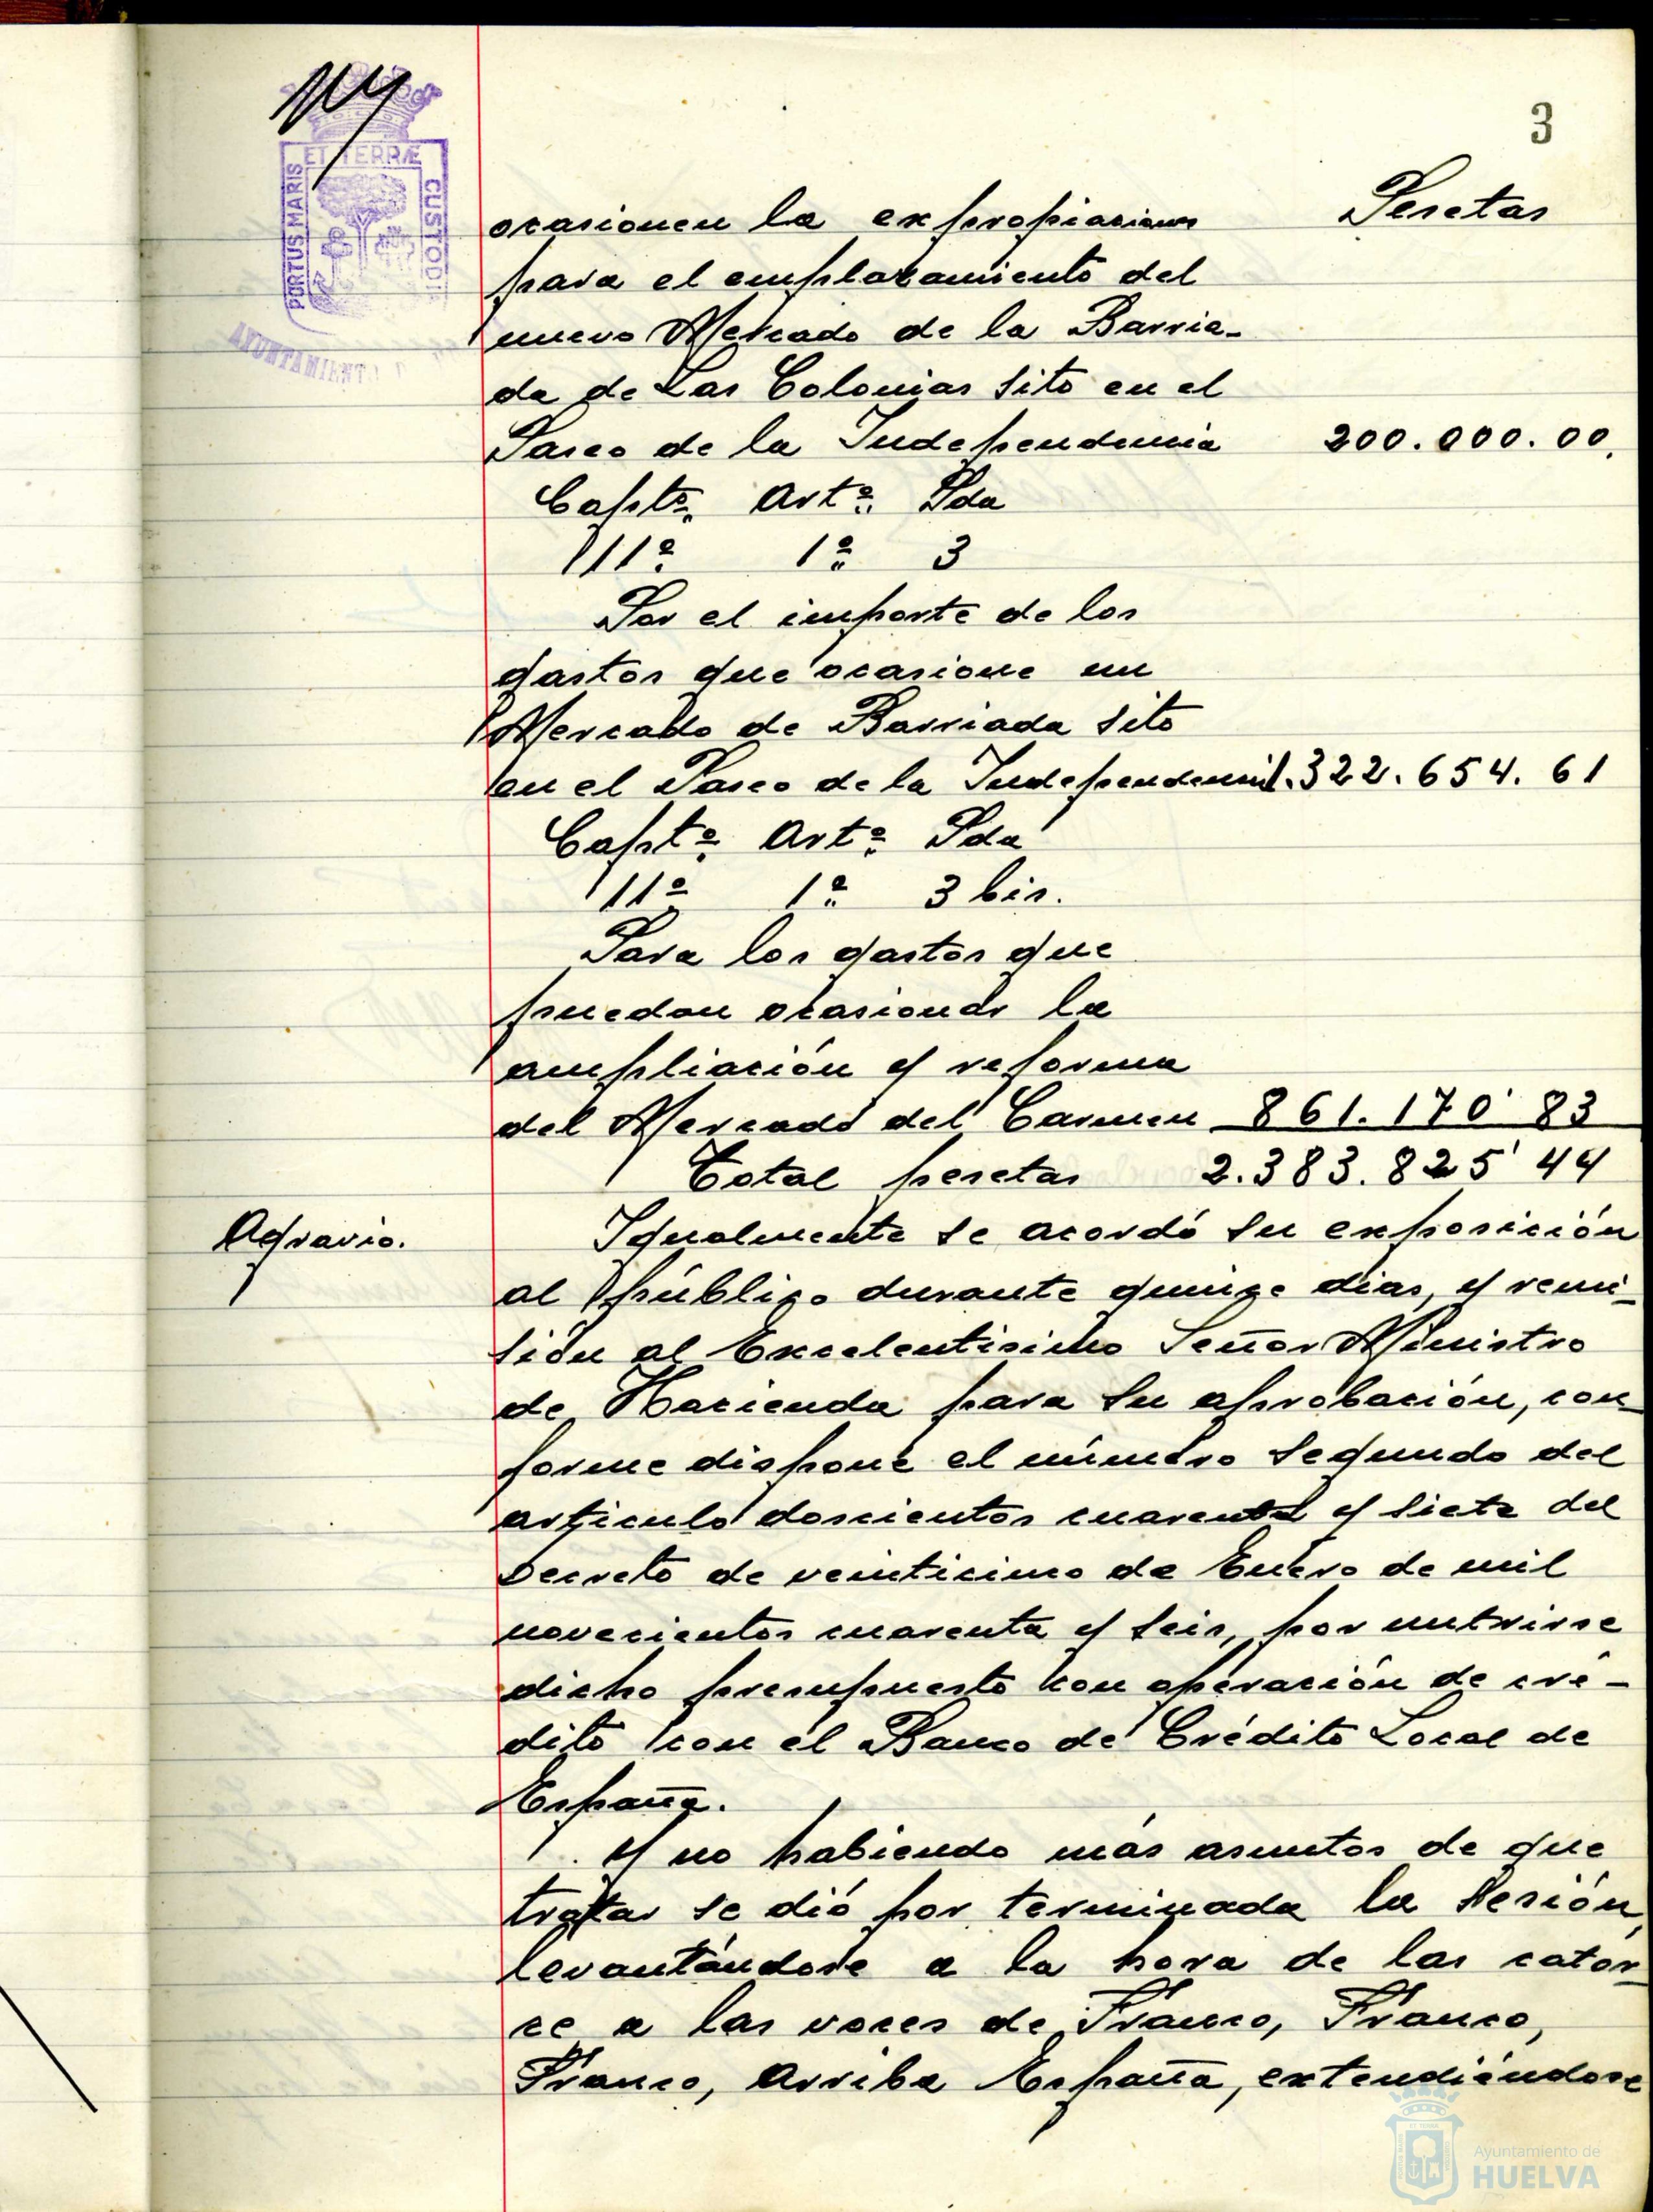 3
PORTUS MARIS ET TERRÆ CUSTODIA
AYUNTAMIENTO
Pesetas
ocasionen la expropiaciones
para el emplazamiento del
nuevo Mercado de la Barria-
da de Las Colonias sito en el
Paseo de la Independencia 200.000.00,
Captº. Artº. Pda
11º. 1º. 3
Por el importe de los
gastos que ocasione un
Mercado de Barriada sito
en el Paseo de la Independencia 1.322.654.61
Captº. Artº. Pda
11º 1º. 3 bis.
Para los gastos que
puedan ocasionar la
ampliación y reforma
del Mercado del Carmen 861.170'83
Total pesetas 2.383.825'44
Agravio.
Igualmente se acordó su exposición
al público durante quince dias, y remi-
sión al Excelentisimo Señor Ministro
de Hacienda para su aprobación, con-
forme dispone el número segundo del
articulo doscientos cuarenta y siete del
Decreto de veinticinco de Enero de mil
novecientos cuarenta y seis, por nutrirse
dicho presupuesto con operación de cré-
dito con el Banco de Crédito Local de
España.
Y no habiendo más asuntos de que
tratar se dió por terminada la sesión,
levantándose a la hora de las cator-
ce a las voces de Franco, Franco,
Franco, Arriba España, extendiéndose
Ayuntamiento de
HUELVA